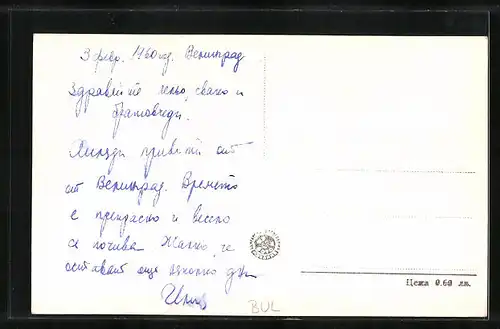 3 февр. 1960 год. Велинград
Здравейте лельо, свако и
братовчеди,
Хиляди привети от
от Велинград. Времето
е прекрасно и весело
се почива. Жалко, че
остават още няколко дни
Цена 0.60 лв.
BUL